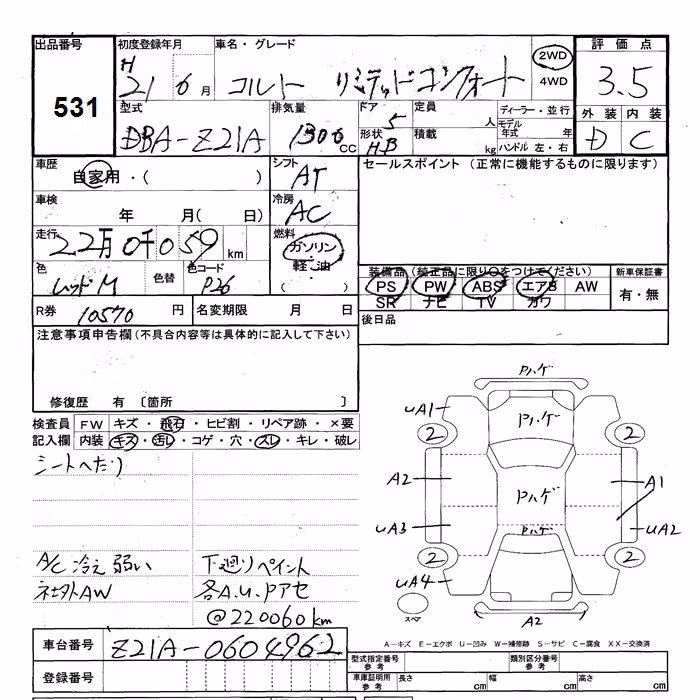 出品番号 初度登録年月 車名・グレード 2WD 評価点
531 H 21 6月 コルト リミテッドコンフォート 4WD 3.5
型式 排気量 ドア 定員 ディーラー・並行 外装 内装
DBA-Z21A 1300cc 5 人 モデル年式 年 D C
形状 HB 積載 kg ハンドル 左・右
車歴 シフト セールスポイント (正常に機能するものに限ります)
自家用・( ) AT
車検 冷房
年 月( 日) AC
走行 燃料
22万0千059km ガソリン
色 色替 色コード 軽・油 装備品(純正品に限り○をつけてください) 新車保証書
レッドM P26 ( ) PS PW ABS エアB AW 有・無
SR ナビ TV カワ
R券 10570円 名変期限 月 日 後日品
注意事項申告欄(不具合内容等は具体的に記入して下さい)
修復歴 有 〔箇所 〕
検査員 FW キズ・飛石・ヒビ割・リペア跡・×要
記入欄 内装 キズ・汚レ・コゲ・穴・スレ・キレ・破レ
シートへたり
A/C冷え弱い 下廻りペイント
社外AW 各A.U.Pアセ
@220060km
Pハゲ
uA1 Pハゲ
2 2
A2 Pハゲ A1
uA3 Pハゲ uA2
2 2
uA4
スペア A2
車台番号 Z21A-0604962
A-キズ E-エクボ U-凹み W-補修跡 S-サビ C-腐食 XX-交換済
登録番号 型式指定番号 参考 類別区分番号 参考
車庫証明用 参考 長さ cm 幅 cm 高さ cm